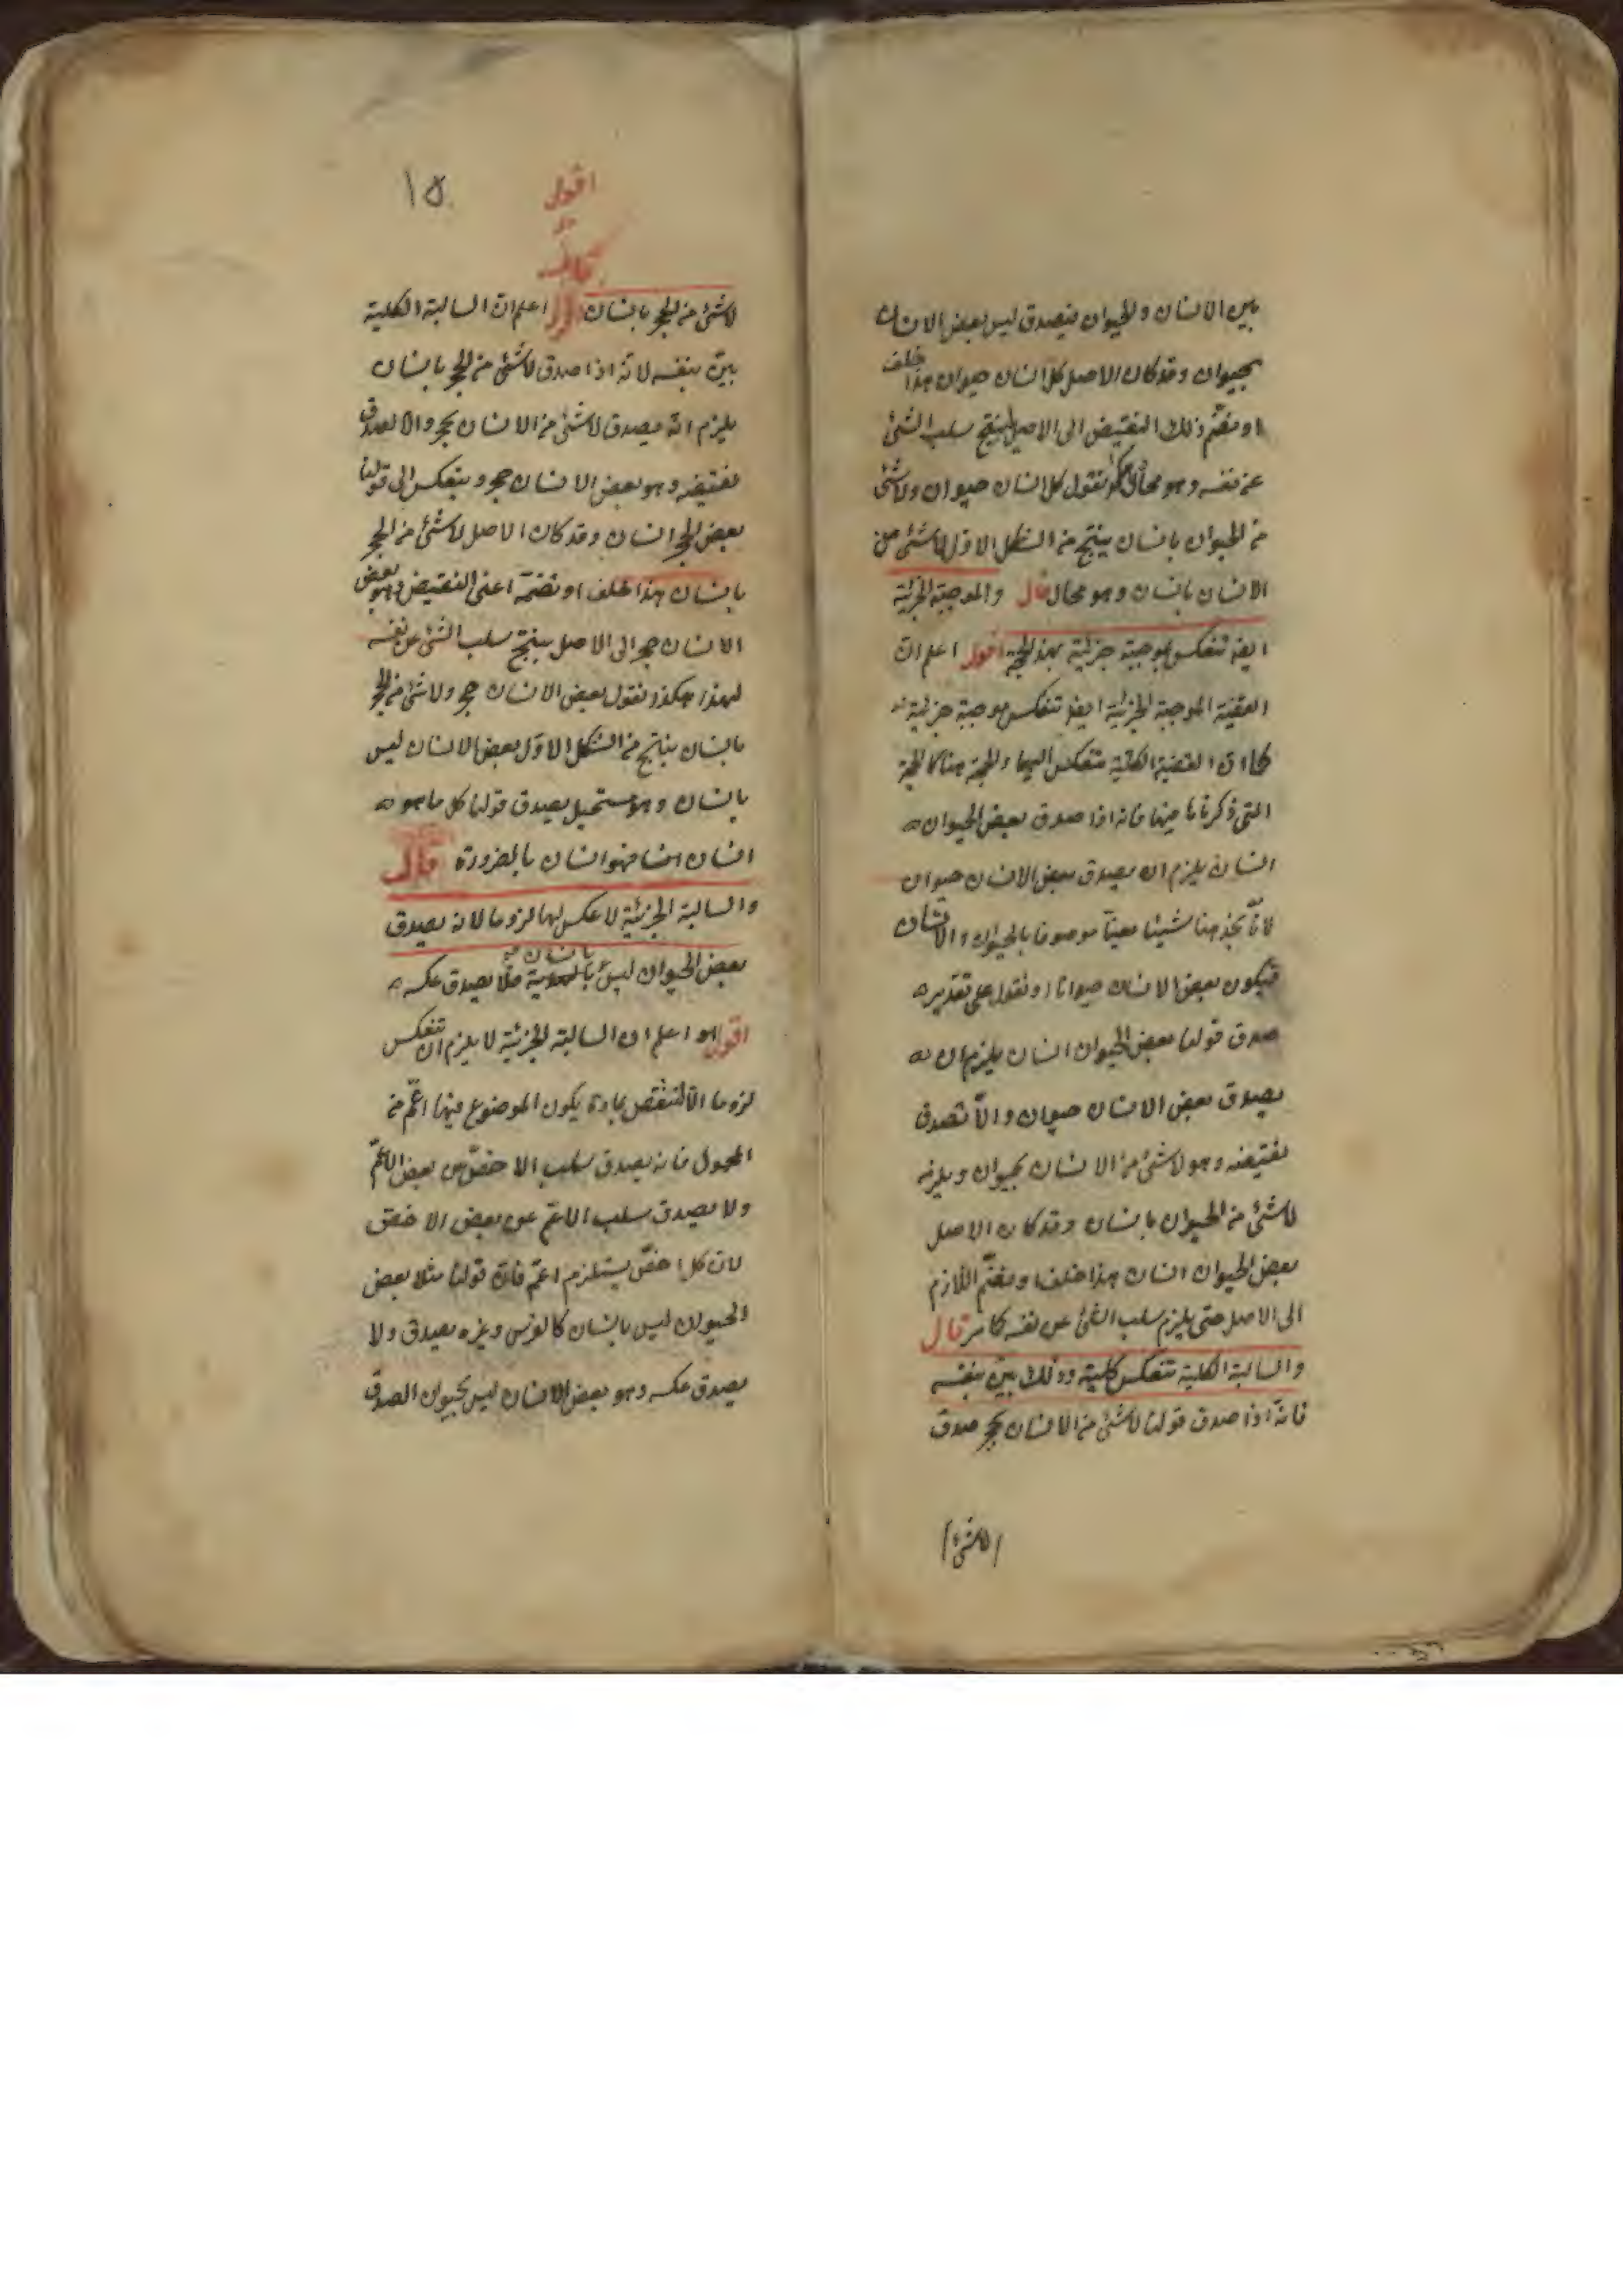 بين الانسان والحيوان فيصدق ليس بعض الانسان
بحيوان وقد كان الاصل كل انسان حيوان هذا خلف
او نضم ذلك النقيض الى الاصل لينتج سلب الشئ
عن نفسه وهو محال نقول كل انسان حيوان ولا شئ
من الحيوان بانسان ينتج من الشكل الاول لا شئ من
الانسان بانسان وهو محال قال والموجبة الجزئية
ايضا تنعكس موجبة جزئية بهذه الحجة اقول اعلم ان
القضية الموجبة الجزئية ايضا تنعكس موجبة جزئية
كما ان القضية الكلية تنعكس اليها والحجة هنا كالحجة
التى ذكرناها فيها فانه اذا صدق بعض الحيوان
انسان يلزم ان يصدق بعض الانسان حيوان
لانا نجد هنا شيئا معينا موصوفا بالحيوان والانسان
فيكون بعض الانسان حيوانا او نقول على تقدير
صدق قولنا بعض الحيوان انسان يلزم ان
يصدق بعض الانسان حيوان والا لصدق
نقيضه وهو لا شئ من الانسان بحيوان ويلزمه
لا شئ من الحيوان بانسان وقد كان الاصل
بعض الحيوان انسان هذا خلف او نضم اللازم
الى الاصل حتى يلزم سلب الشئ عن نفسه كما مر قال
والسالبة الكلية تنعكس كلية وذلك بين بنفسه
فانه اذا صدق قولنا لا شئ من الانسان بحجر صدق
لا شئ
١٥
اقول
قال
لا شئ من الحجر بانسان اقول اعلم ان السالبة الكلية
بين بنفسه لانه اذا صدق لا شئ من الحجر بانسان
يلزم انه يصدق لا شئ من الانسان بحجر والا لصدق
نقيضه وهو بعض الانسان حجر وينعكس الى قولنا
بعض الحجر انسان وقد كان الاصل لا شئ من الحجر
بانسان هذا خلف او نضمه اعنى النقيض وهو بعض
الانسان حجر الى الاصل ينتج سلب الشئ عن نفسه
هكذا نقول بعض الانسان حجر ولا شئ من الحجر
بانسان ينتج من الشكل الاول بعض الانسان ليس
بانسان وهو مستحيل يصدق قولنا كل ما هو
انسان فهو انسان بالضرورة قال
والسالبة الجزئية لا عكس لها لزوما لانه يصدق
بعض الحيوان ليس بانسان فلا يصدق عكسه
اقول اعلم ان السالبة الجزئية لا يلزم ان تنعكس
لزوما والا لانتقض بمادة يكون الموضوع فيها اعم من
المحمول فانه يصدق سلب الاخص من بعض الاعم
ولا يصدق سلب الاعم عن بعض الاخص
لان كل اخص يستلزم اعم فان قولنا مثلا بعض
الحيوان ليس بانسان كالفرس وغيره يصدق ولا
يصدق عكسه وهو بعض الانسان ليس بحيوان لصدق